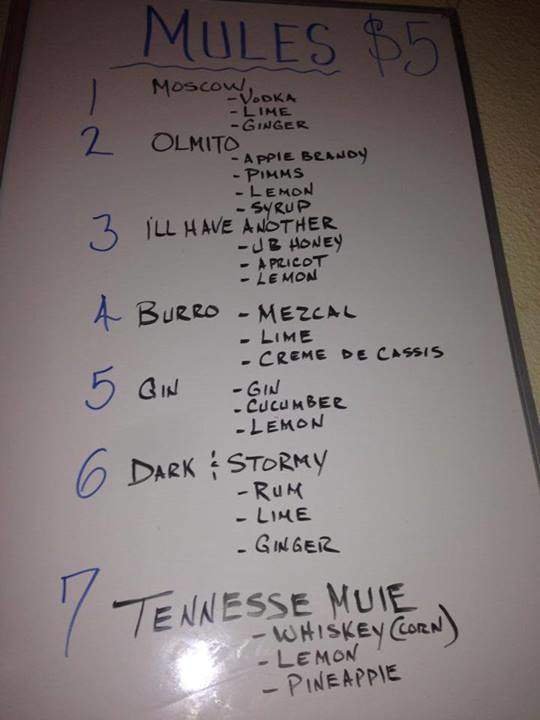 MULES $5
1 MOSCOW
- VODKA
- LIME
- GINGER
2 OLMITO
- APPLE BRANDY
- PIMMS
- LEMON
- SYRUP
3 ILL HAVE ANOTHER
- JB HONEY
- APRICOT
- LEMON
4 BURRO - MEZCAL
- LIME
- CREME DE CASSIS
5 GIN - GIN
- CUCUMBER
- LEMON
6 DARK & STORMY
- RUM
- LIME
- GINGER
7 TENNESSE MULE
- WHISKEY (CORN)
- LEMON
- PINEAPPLE